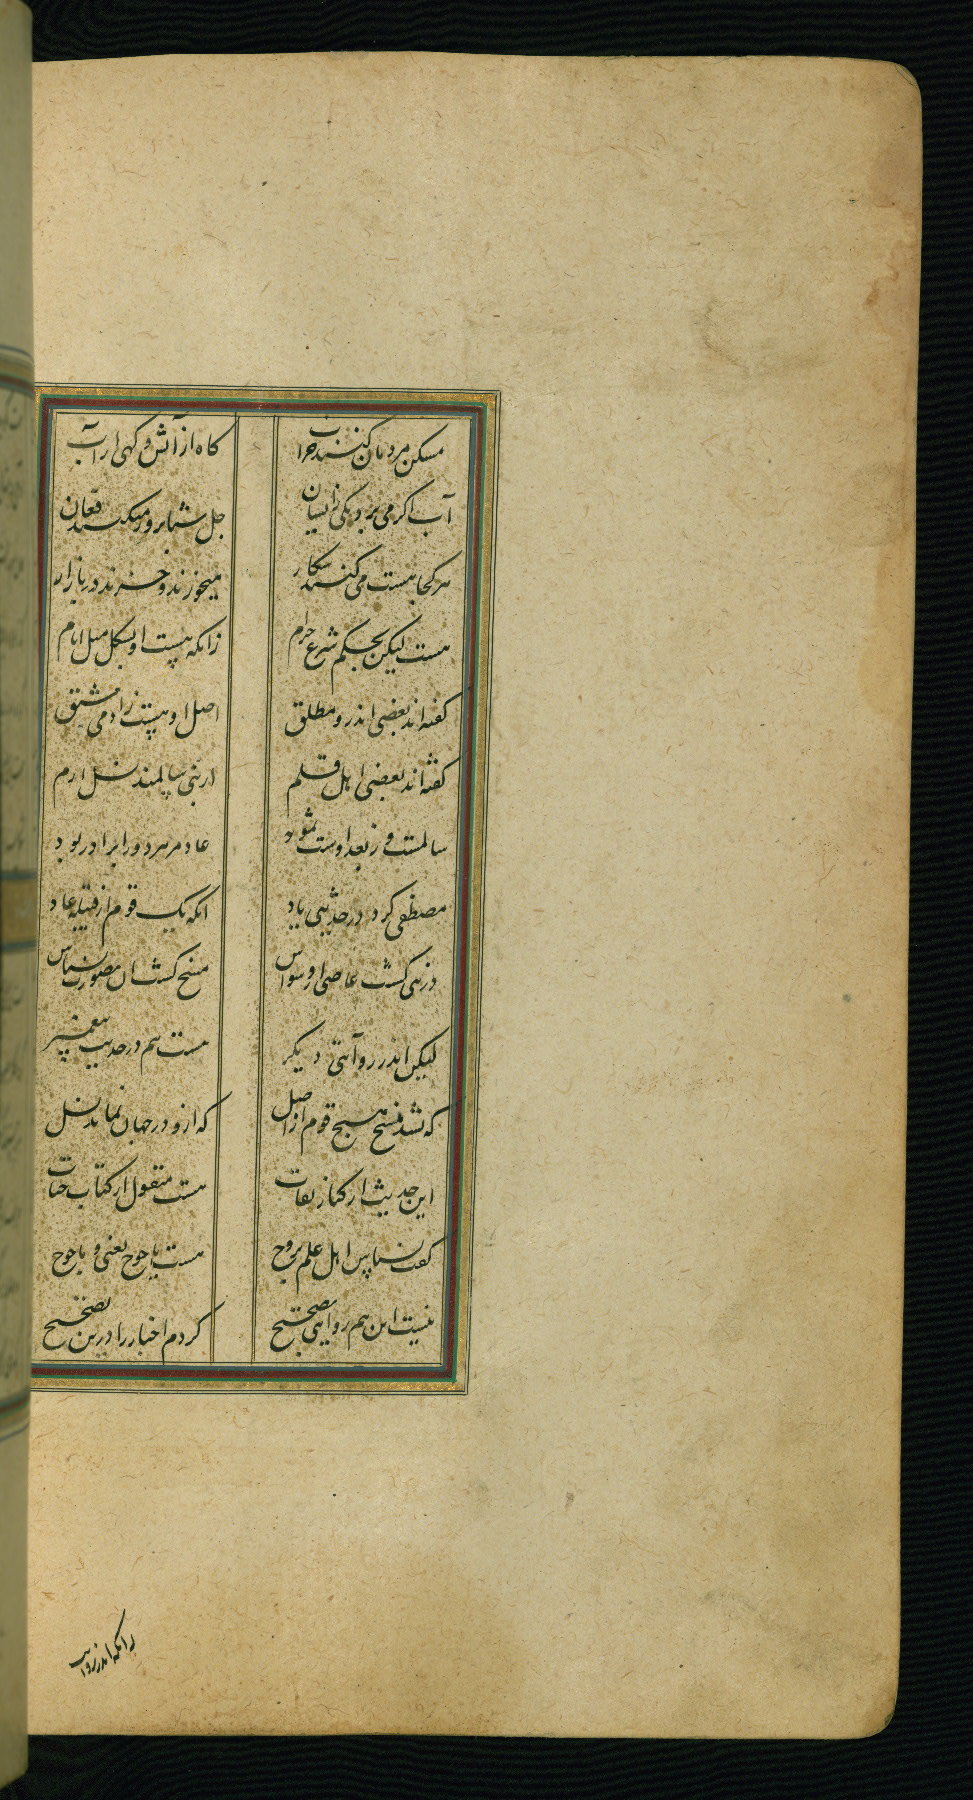 مسکن مردمان کنند خراب گاه از آتش و گهی از آب
آب اگر می برد یکی زانیسان جمل شهار و میکنند فغان
هر کجا هست می کنند شکار میخورند و خرند در بازار
هست لیکن بحکم شرع حرام زانکه هست او بشکل مثل انام
گفته اند بعضی اندرو مطلق اصل او هست زادمی مشتق
گفته اند بعضی اهل قلم از بنی سالمند نسل ارم
سالمست و ز بعد اوست ثمود عاد مر هر دو را برادر بود
مصطفی کرد در حدیثی یاد انکه یک قوم از قبیله عاد
در نبی گشت عاصی از وسواس مسخ گشت آن بصورت نسناس
لیکن اندر روآیتی دیگر هست هم در حدیث پیغمبر
که نشد مسخ هیچ قوم از اصل که ازو در جهان نماند نسل
این حدیث از کتاب ثقات هست منقول از کتاب حیات
گفت نسناس اهل علم بروج هست یاجوج یعنی و ماجوج
نیست این هم روایتی صحیح کردم اخبار را درین تصحیح
زانکه اندر روایت